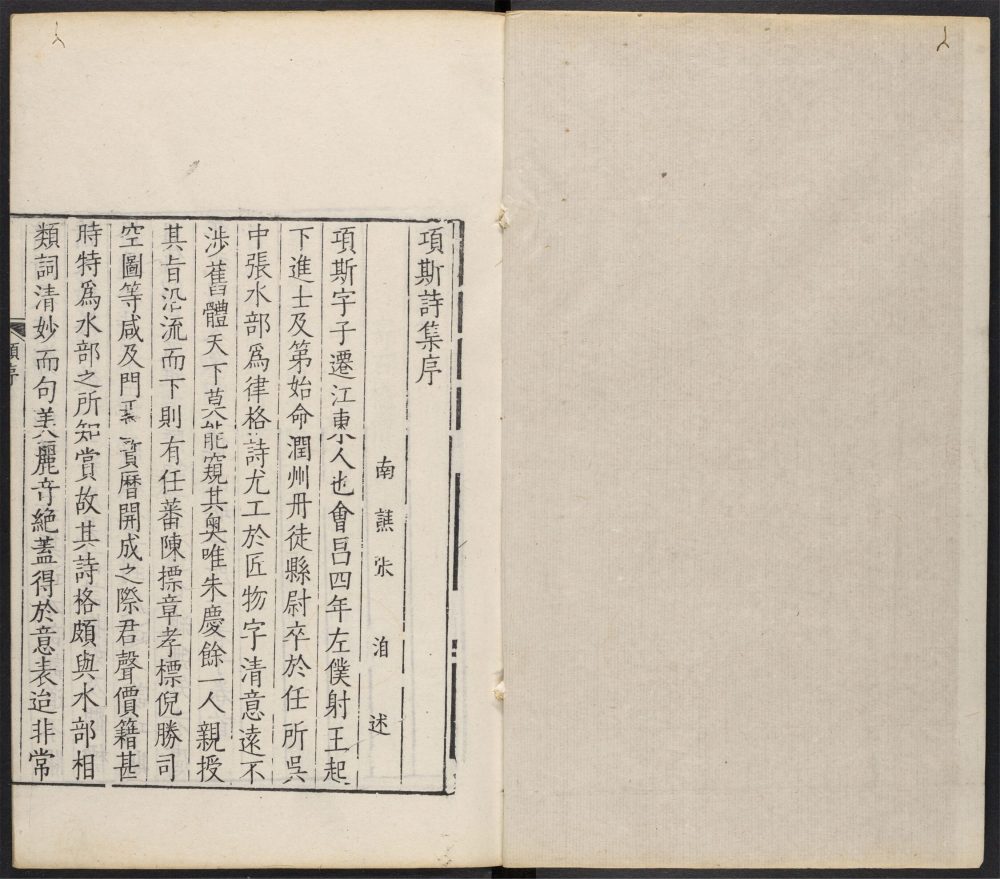 項斯詩集序
南譙張洎述
項斯字子遷江東人也會昌四年左僕射王起
下進士及第始命潤州丹徒縣尉卒於任所吳
中張水部爲律格詩尤工於匠物字清意遠不
涉舊體天下莫能窺其奧唯朱慶餘一人親授
其旨沿流而下則有任蕃陳摽章孝標倪勝司
空圖等咸及門焉寶曆開成之際君聲價籍甚
時特爲水部之所知賞故其詩格頗與水部相
類詞清妙而句美麗奇絕蓋得於意表迨非常
項序